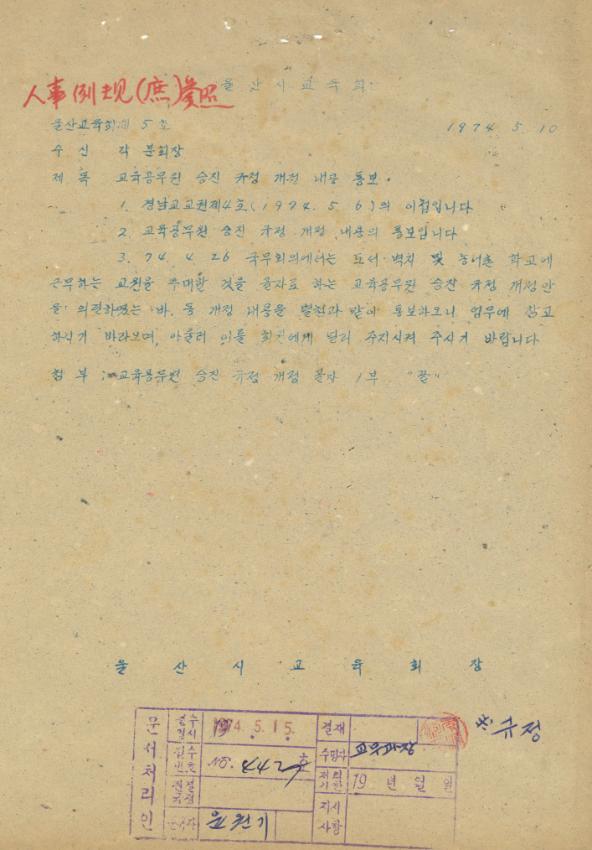 울산시교육회
人事例規(庶)參照
울산교육회제 5 호 1974. 5. 10
수 신 각 분회장
제 목 교육공무원 승진 규정 개정 내용 통보.
1. 경남교교권제4호(1974. 5. 6)의 이첩입니다
2. 교육공무원 승진 규정 개정 내용의 통보입니다
3. 74. 4. 26 국무회의에서는 도서·벽지 및 농어촌 학교에
근무하는 교원을 우대할 것을 골자로 하는 교육공무원 승진 규정 개정안
을 의결하였는 바, 동 개정 내용을 별첨과 같이 통보하오니 업무에 참고
하시기 바라오며, 아울러 이를 회원에게 널리 주지시켜 주시기 바랍니다
첨 부 : 교육공무원 승진 규정 개정 골자 1부 "끝"
울 산 시 교 육 회 장
문서처리인
접수일시 1974. 5. 15. 결재
접수번호 NO. 442 호 교육과장
처리기한 19 년 월 일
지시사항
윤천기
규정